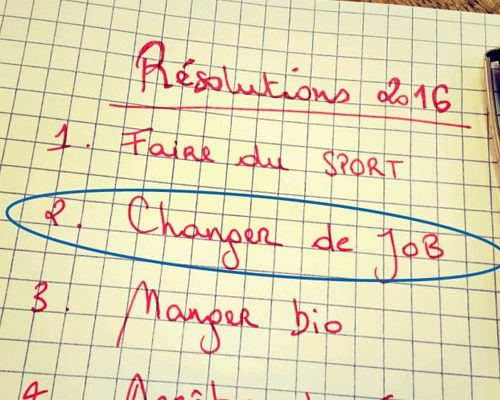 Résolutions 2016
1. Faire du SPORT
2. Changer de JOB
3. Manger bio
4